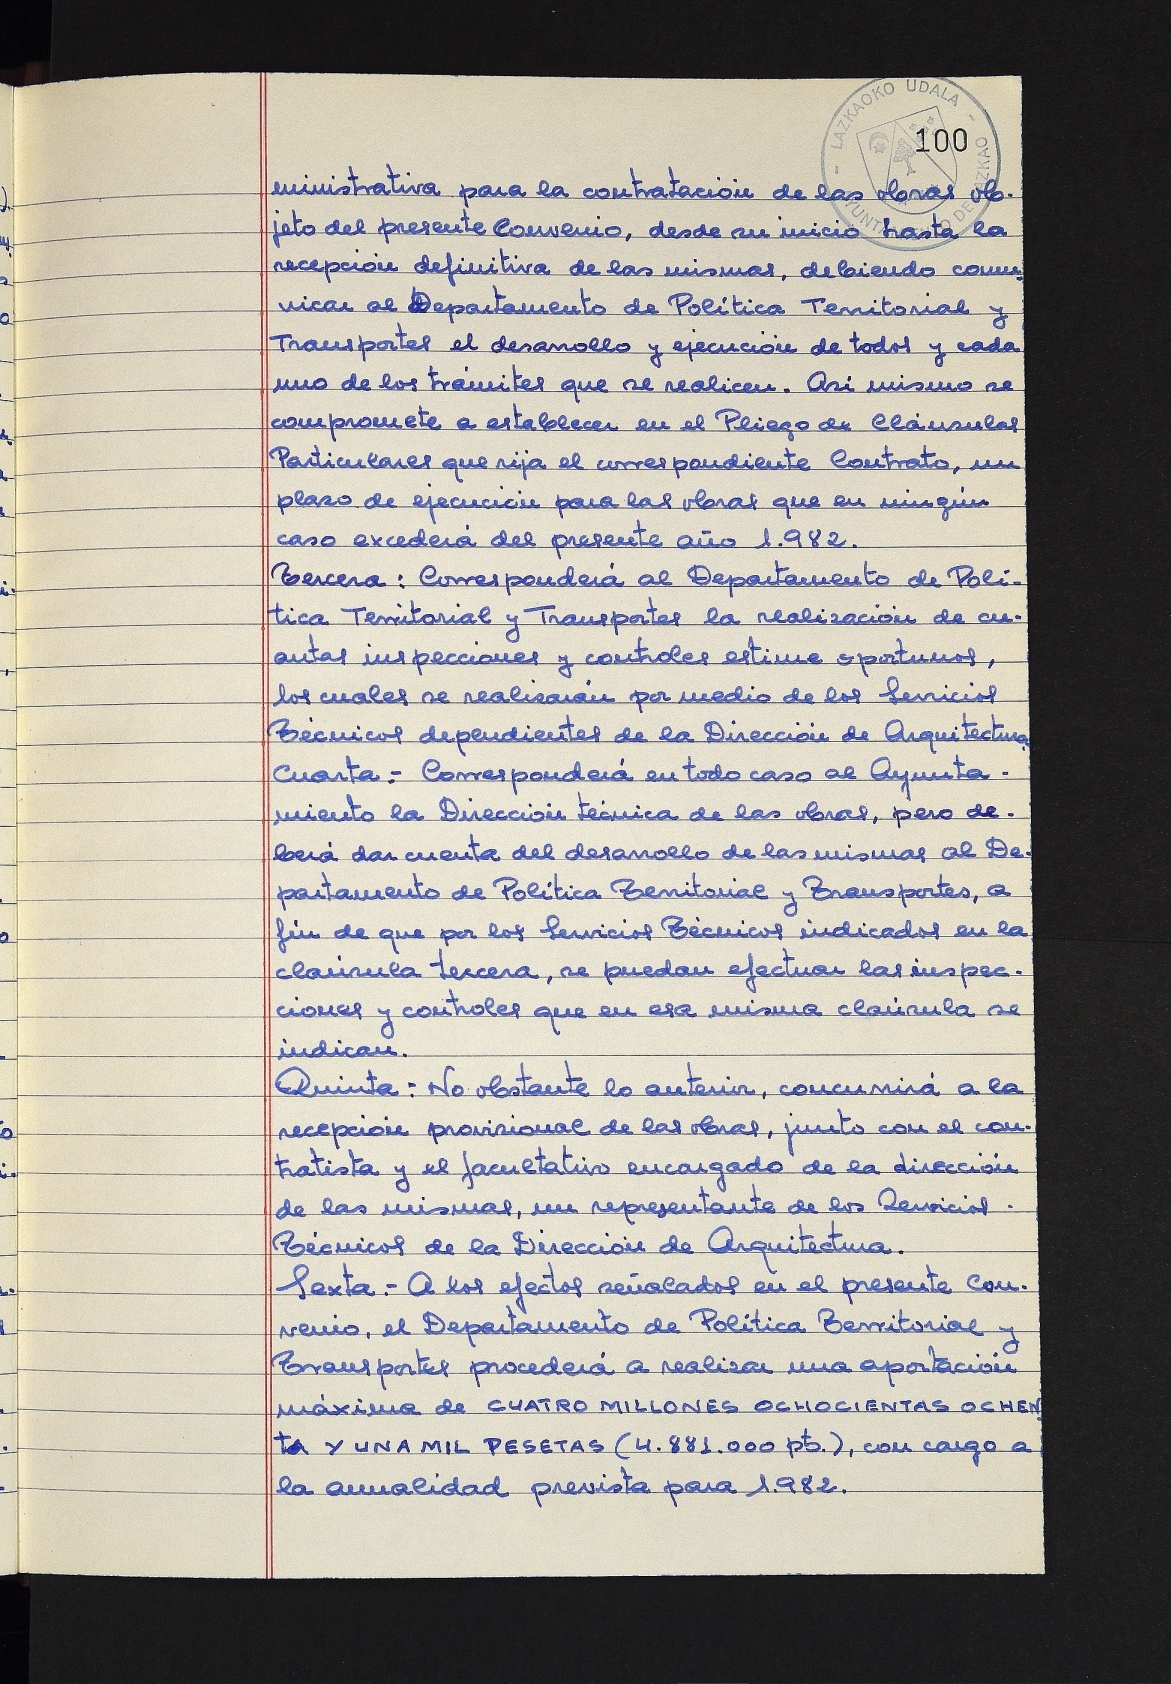 LAZKAOKO UDALA
100
ministrativa para la contratación de las obras ob-
jeto del presente Convenio, desde su inicio hasta la
recepción definitiva de las mismas, debiendo comu-
nicar al Departamento de Política Territorial y
Transportes el desarrollo y ejecución de todos y cada
uno de los trámites que se realicen. Asi mismo se
compromete a establecer en el Pliego de Cláusulas
Particulares que rija el correspondiente Contrato, un
plazo de ejecución para las obras que en ningún
caso excederá del presente año 1.982.
Tercera: Corresponderá al Departamento de Polí-
tica Territorial y Transportes la realización de cu-
antas inspecciones y controles estime oportunos,
los cuales se realizarán por medio de los Servicios
Técnicos dependientes de la Dirección de Arquitectura
Cuarta.- Corresponderá en todo caso al Ayunta-
miento la Dirección técnica de las obras, pero de-
berá dar cuenta del desarrollo de las mismas al De-
partamento de Política Territorial y Transportes, a
fin de que por los Servicios Técnicos indicados en la
claúsula tercera, se puedan efectuar las inspec-
ciones y controles que en esa misma claúsula se
indican.
Quinta: No obstante lo anterior, concurrirá a la
recepción provisional de las obras, junto con el con-
tratista y el facultativo encargado de la dirección
de las mismas, un representante de los Servicios
Técnicos de la Dirección de Arquitectura.
Sexta.- A los efectos señalados en el presente Con-
venio, el Departamento de Política Territorial y
Transportes procederá a realizar una aportación
máxima de CUATRO MILLONES OCHOCIENTAS OCHEN
TA Y UNA MIL PESETAS (4.881.000 pts.), con cargo a
la anualidad prevista para 1.982.